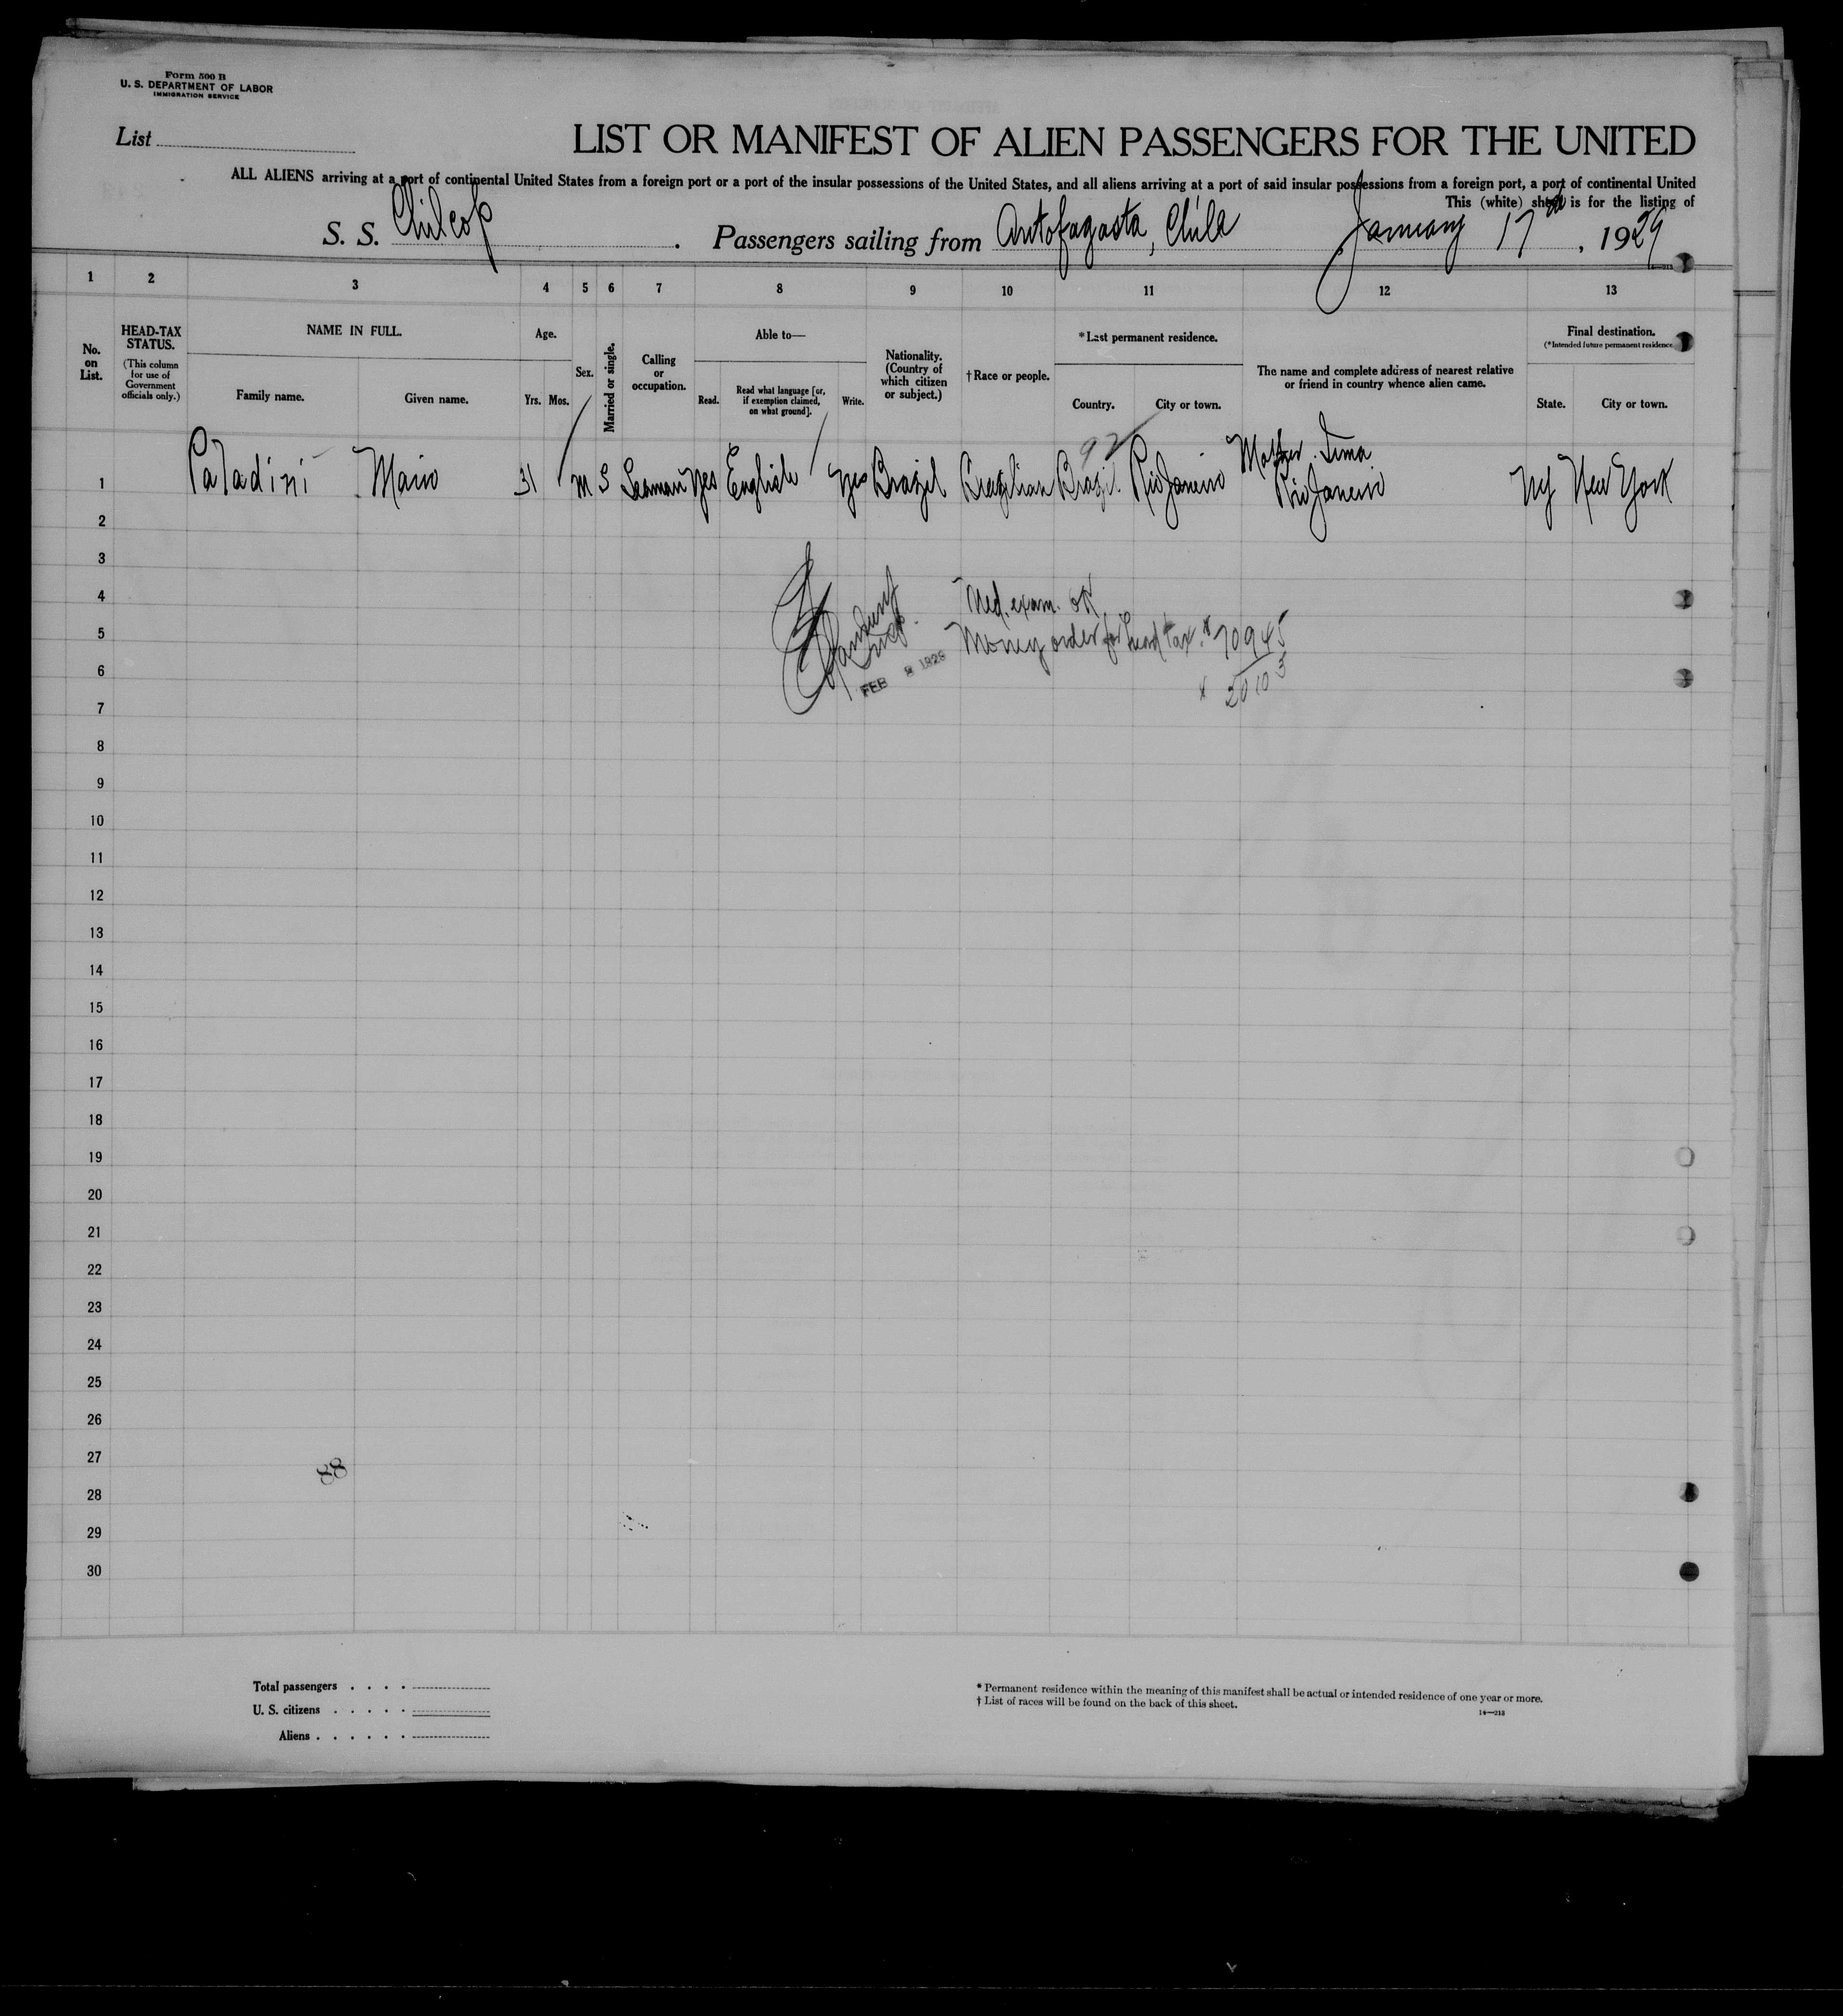 Form 500 B
U. S. DEPARTMENT OF LABOR
IMMIGRATION SERVICE
List
LIST OR MANIFEST OF ALIEN PASSENGERS FOR THE UNITED
ALL ALIENS arriving at a port of continental United States from a foreign port or a port of the insular possessions of the United States, and all aliens arriving at a port of said insular possessions from a foreign port, a port of continental United
This (white) sheet is for the listing of
S. S. Chilcop. Passengers sailing from Antofagasta, Chile January 17th, 1929
1 2 3 4 5 6 7 8 9 10 11 12 13
No. on List.
HEAD-TAX STATUS.
(This column for use of Government officials only.)
NAME IN FULL.
Family name. Given name.
Age.
Yrs. Mos.
Sex.
Married or single.
Calling or occupation.
Able to—
Read. Read what language [or, if exemption claimed, on what ground]. Write.
Nationality. (Country of which citizen or subject.)
†Race or people.
*Last permanent residence.
Country. City or town.
The name and complete address of nearest relative or friend in country whence alien came.
Final destination.
(*Intended future permanent residence
State. City or town.
92
1 Paladini Mario 31 M S Seaman yes English yes Brazil Brazilian Brazil Rio Janeiro Mother Rio Janeiro NY New York
2
3
4 Med. exam. OK
5 Money order for head tax. # 70945
FEB 1929
6
7
8
9
10
11
12
13
14
15
16
17
18
19
20
21
22
23
24
25
26
27
88
28
29
30
Total passengers . . . .
U. S. citizens . . . . .
Aliens . . . . . .
* Permanent residence within the meaning of this manifest shall be actual or intended residence of one year or more.
† List of races will be found on the back of this sheet.